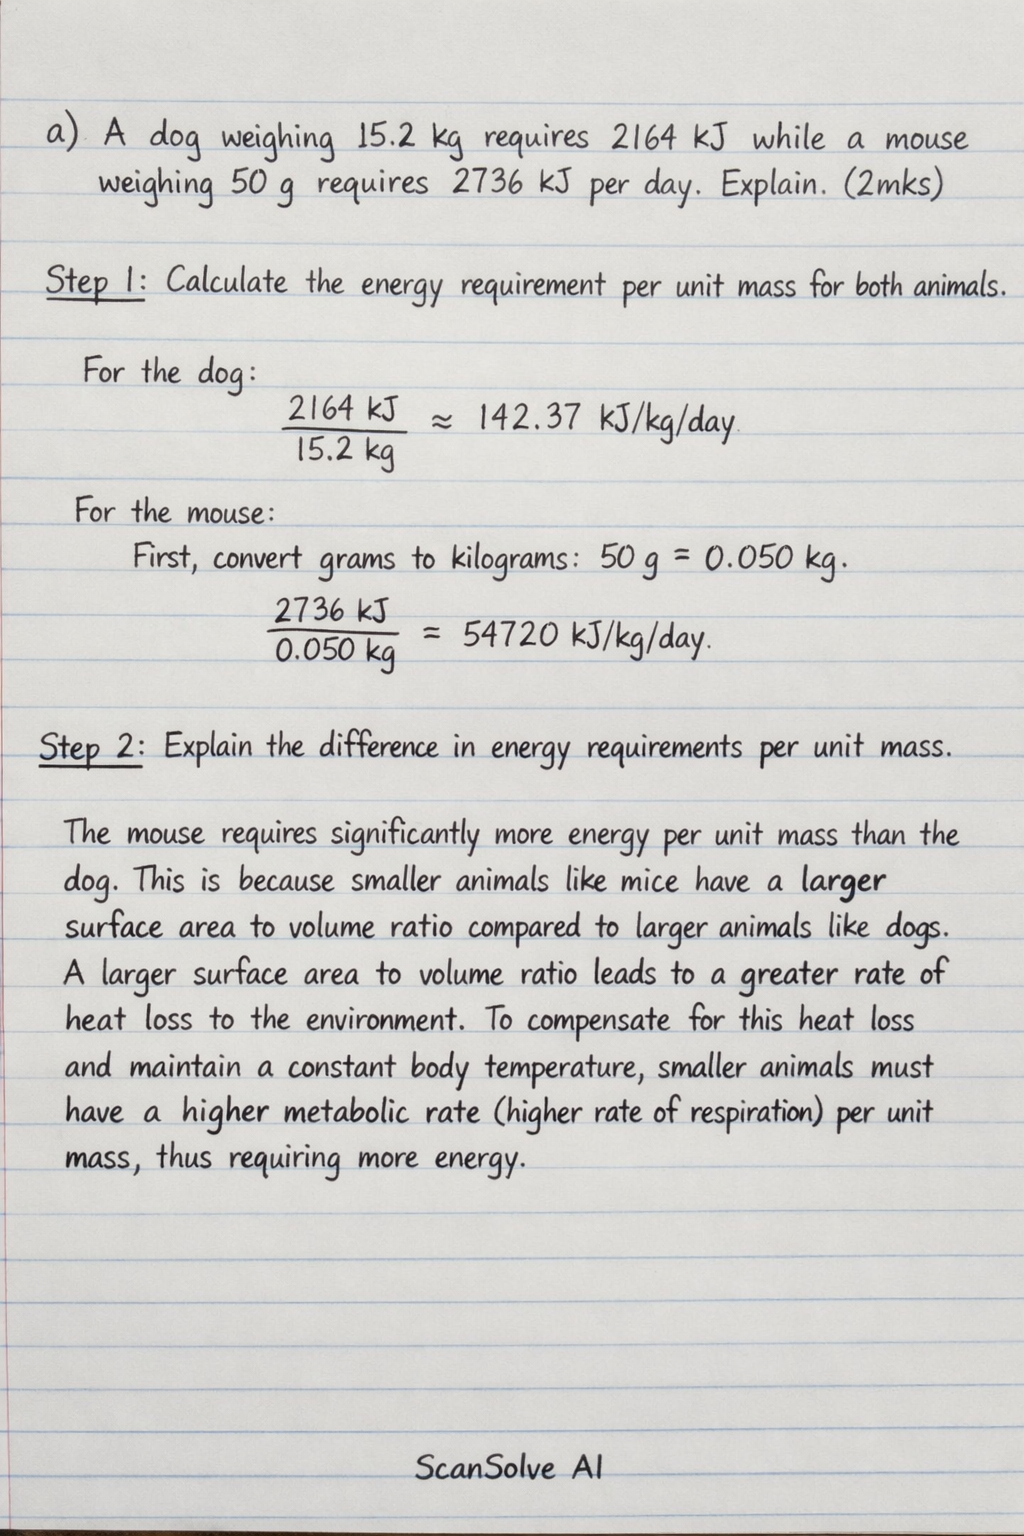 a) A dog weighing 15.2 kg requires 2164 kJ while a mouse
weighing 50 g requires 2736 kJ per day. Explain. (2mks)
Step 1: Calculate the energy requirement per unit mass for both animals.
For the dog:
2164 kJ / 15.2 kg ≈ 142.37 kJ/kg/day.
For the mouse:
First, convert grams to kilograms: 50 g = 0.050 kg.
2736 kJ / 0.050 kg = 54720 kJ/kg/day.
Step 2: Explain the difference in energy requirements per unit mass.
The mouse requires significantly more energy per unit mass than the
dog. This is because smaller animals like mice have a larger
surface area to volume ratio compared to larger animals like dogs.
A larger surface area to volume ratio leads to a greater rate of
heat loss to the environment. To compensate for this heat loss
and maintain a constant body temperature, smaller animals must
have a higher metabolic rate (higher rate of respiration) per unit
mass, thus requiring more energy.
ScanSolve AI